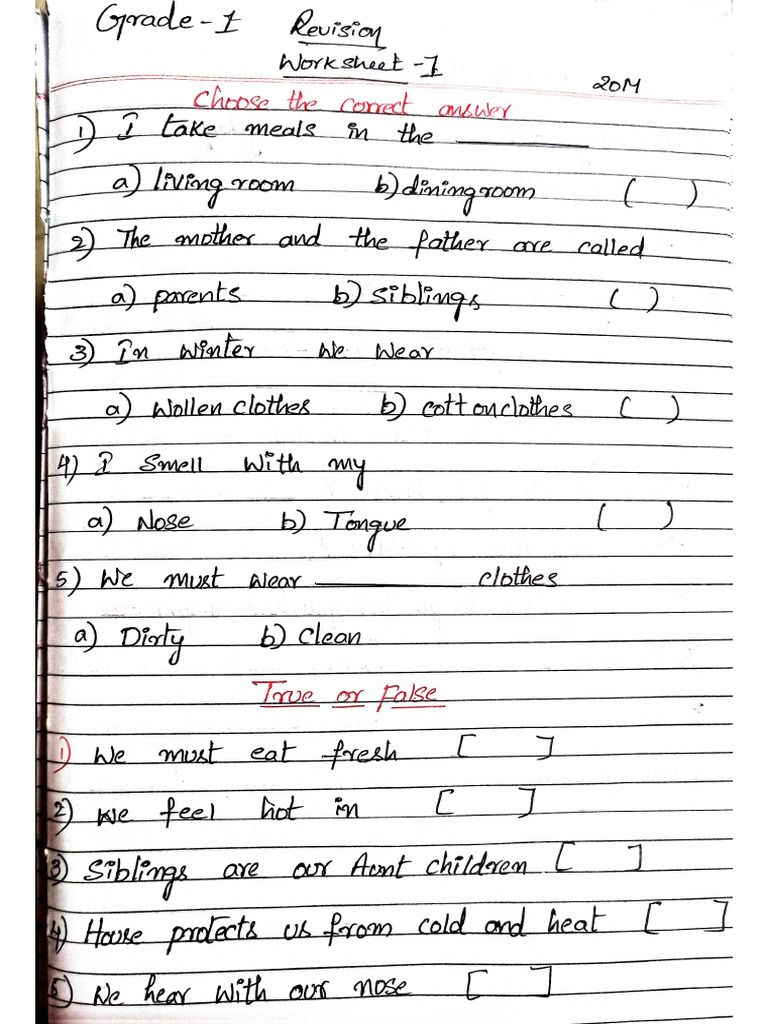 Grade-1 Revision
Worksheet-1
20M
Choose the correct answer
1) I take meals in the ________
a) living room b) dining room ( )
2) The mother and the father are called
a) parents b) siblings ( )
3) In winter we wear
a) Wollen clothes b) cotton clothes ( )
4) I smell with my
a) Nose b) Tongue ( )
5) We must wear ________ clothes
a) Dirty b) Clean
True or False
1) We must eat fresh [ ]
2) We feel hot in [ ]
3) Siblings are our Aunt children [ ]
4) House protects us from cold and heat [ ]
5) We hear with our nose [ ]